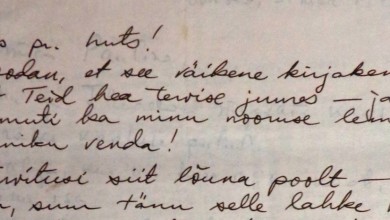 pr. Nuts!
odan, et see väikene kirjaken
Teid hea tervise juures — ja
muti ka minu nooruse lem
niku venda!
rvitusi siit lõuna poolt —
, suur tänu selle lahke